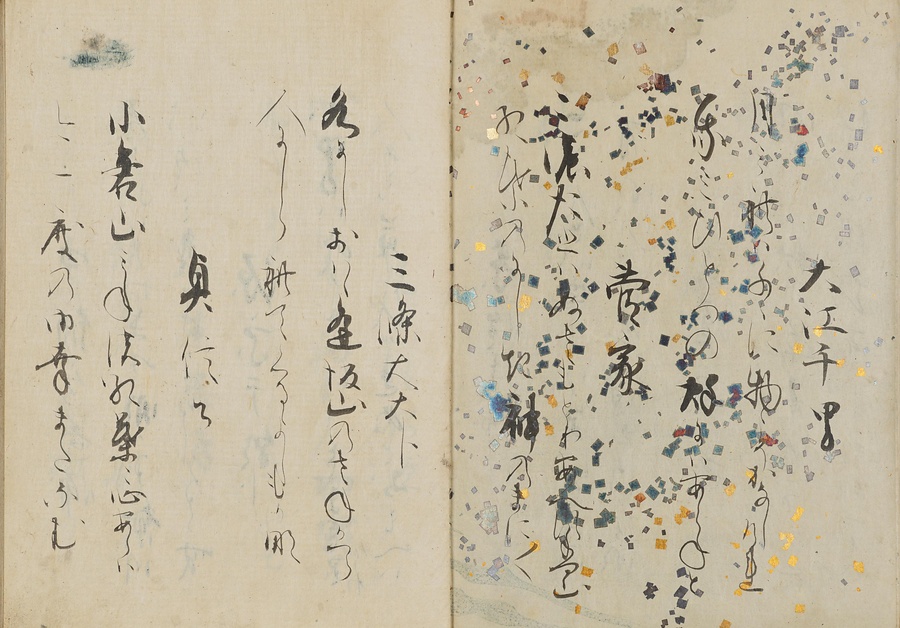 大江千里
月みれはちゝに物こそかなしけれ
我みひとつの秋にはあらねと
菅家
此度はぬさもとりあへす手向山
紅葉のにしき神のまに〱
三條右大臣
名にしおはゝ逢坂山のさねかつら
人にしられてくるよしも哉
貞信公
小倉山みねの紅葉心あらは
今一度の御幸またなむ